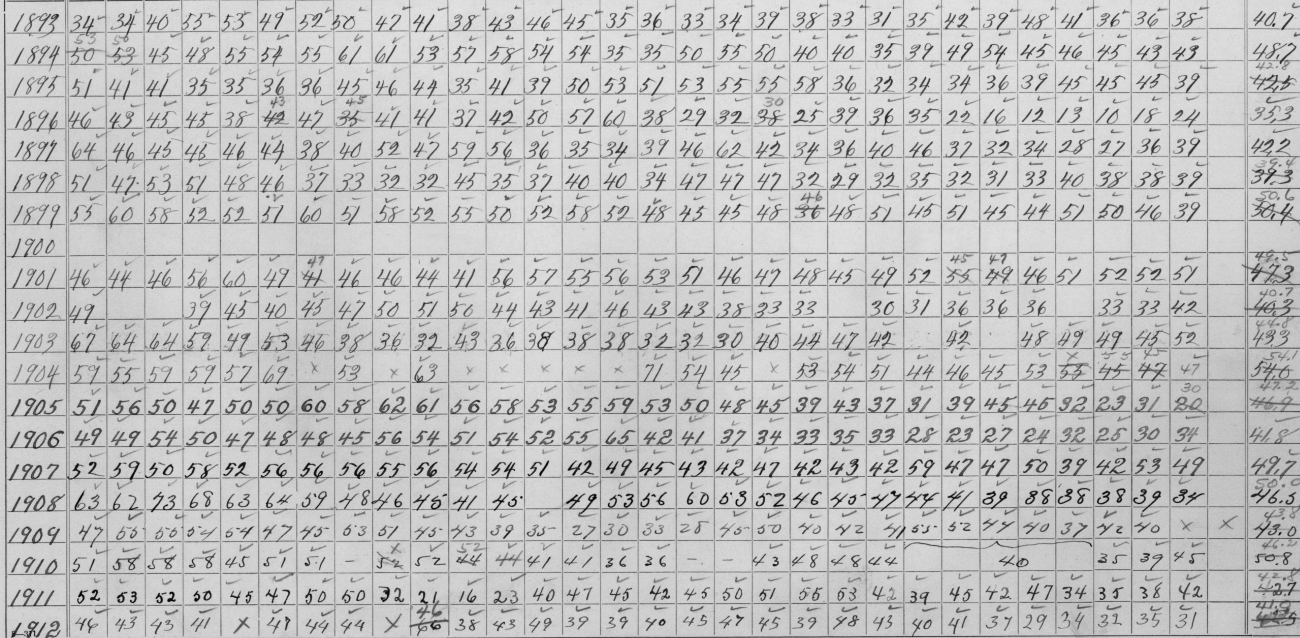 1893 34 34 40 55 53 49 52 50 47 41 38 43 46 45 35 36 33 34 39 38 33 31 35 42 39 48 41 36 36 38 40.7
53 56
1894 50 53 45 48 55 54 55 61 61 53 57 58 54 54 35 35 50 55 50 40 40 35 39 49 54 45 46 45 43 43 48.7
42.8
1895 51 41 41 35 35 36 36 45 46 44 35 41 39 50 53 51 53 55 55 58 36 32 34 34 36 39 45 45 45 39 42.5
43 45 30
1896 46 43 45 45 38 42 47 35 41 41 37 42 50 57 60 38 29 32 38 25 39 36 35 22 16 12 13 10 18 24 35.3
1897 64 46 45 45 46 44 38 40 52 47 59 56 36 35 34 39 46 62 42 34 36 40 46 37 32 34 28 27 36 39 42.2
39.4
1898 51 47 53 51 48 46 37 33 32 32 45 35 37 40 40 34 47 47 47 32 29 32 35 32 31 33 40 38 38 39 39.3
46 50.6
1899 55 60 58 52 52 57 60 51 58 52 55 50 52 58 52 48 45 45 48 36 48 51 45 51 45 44 51 50 46 39 50.4
1900
47 45 47 49.5
1901 46 44 46 56 60 49 41 46 46 44 41 56 57 55 56 53 51 46 47 48 45 49 52 55 49 46 51 52 52 51 47.3
40.7
1902 49 39 45 40 45 47 50 51 50 44 43 41 46 43 43 38 33 33 30 31 36 36 36 33 33 42 40.3
44.8
1903 67 64 64 59 49 53 46 38 36 32 43 36 38 38 38 32 32 30 40 44 47 42 42 48 49 49 45 52 43.3
x 55 45 54.1
1904 59 55 59 59 57 69 x 53 x 63 x x x x x 71 54 45 x 53 54 51 44 46 45 53 55 45 47 47 54.0
30 47.2
1905 51 56 50 47 50 50 60 58 62 61 56 58 53 55 59 53 50 48 45 39 43 37 31 39 45 45 32 23 31 20 46.9
1906 49 49 54 50 47 48 48 45 56 54 51 54 52 55 65 42 41 37 34 33 35 33 28 23 27 24 32 25 30 34 41.8
1907 52 59 50 58 52 56 56 56 55 56 54 54 51 42 49 45 43 42 47 42 43 42 59 47 47 50 39 42 53 49 49.7
50.0
1908 63 62 73 68 63 64 59 48 46 45 41 45 49 53 56 60 53 52 46 45 47 44 41 39 38 38 38 39 34 46.5
43.8
1909 47 55 55 54 54 47 45 53 51 45 43 39 35 27 30 33 28 45 50 40 42 41 55 52 44 40 37 42 40 x x 43.0
x 52 46.2
1910 51 58 58 58 45 51 51 - 52 52 44 44 41 41 36 36 - - 43 48 48 44 40 35 39 45 50.8
42.8
1911 52 53 52 50 45 47 50 50 32 21 16 23 40 47 45 42 45 50 51 55 53 42 39 45 42 47 34 35 38 42
46 41.9
1912 46 43 43 41 x 47 44 44 x 66 38 43 49 39 39 40 45 47 45 39 48 43 40 41 37 29 34 32 35 31